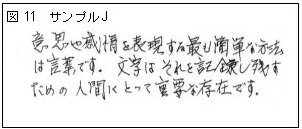 図11 サンプルJ
意思や感情を表現する最も簡単な方法
は言葉です。文字はそれを記録し残す
ための人間にとって重要な存在です。